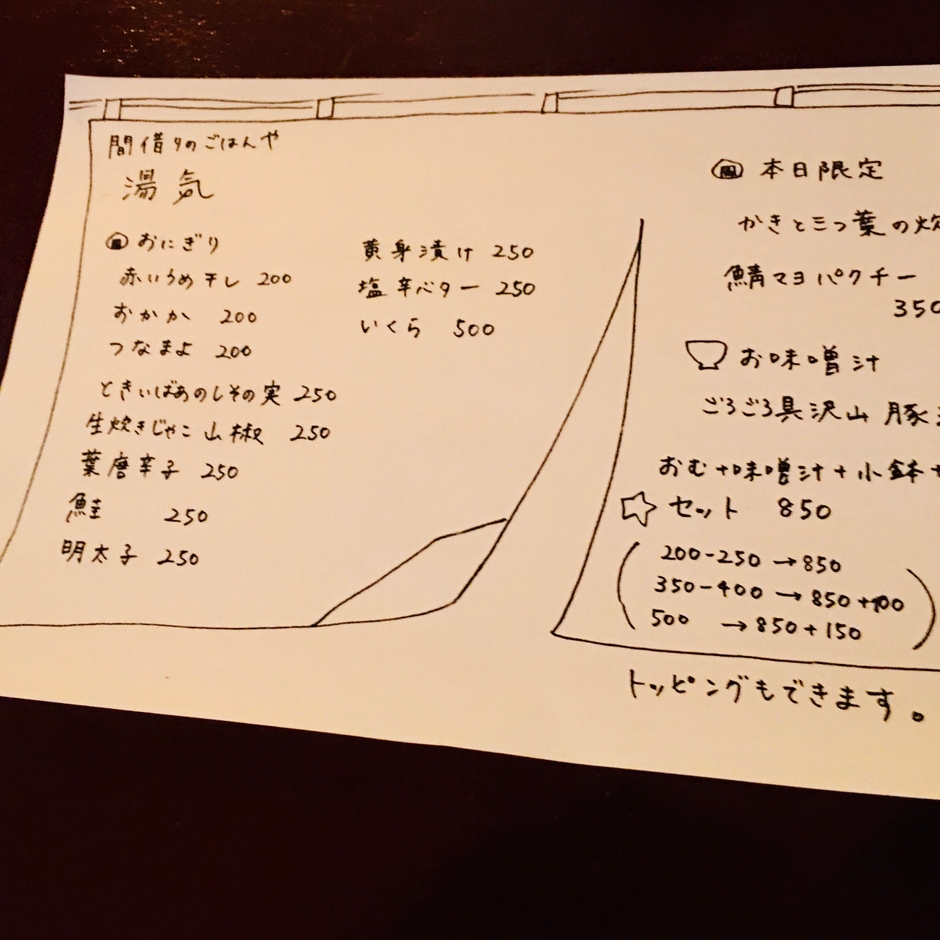 間借りのごはんや
湯気
おにぎり
赤いうめ干し 200
おかか 200
つなまよ 200
ときいばあのしその実 250
生炊きじゃこ山椒 250
葉唐辛子 250
鮭 250
明太子 250
黄身漬け 250
塩辛バター 250
いくら 500
本日限定
かきと三つ葉の炊
鯖マヨパクチー
350
お味噌汁
ごろごろ具沢山 豚
おむ+味噌汁+小鉢+
セット 850
200-250 → 850
350-400 → 850+100
500 → 850+150
トッピングもできます。